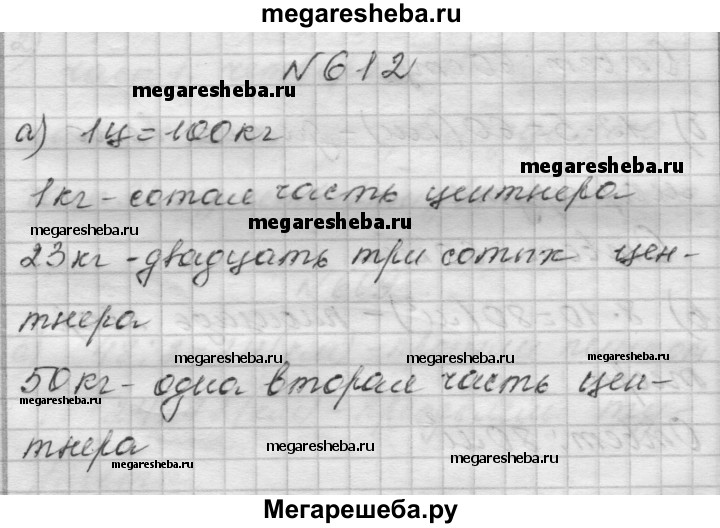 megaresheba.ru
N612
megaresheba.ru
а) 1ц=100кг
megaresheba.ru
1кг-сотая часть центнера
megaresheba.ru
megaresheba.ru
23кг-двадцать три сотых цен-
megaresheba.ru
тнера
megaresheba.ru
megaresheba.ru
megaresheba.ru
50кг-одна вторая часть цен-
megaresheba.ru
тнера
megaresheba.ru
megaresheba.ru
megaresheba.ru
Мегарешеба.ру